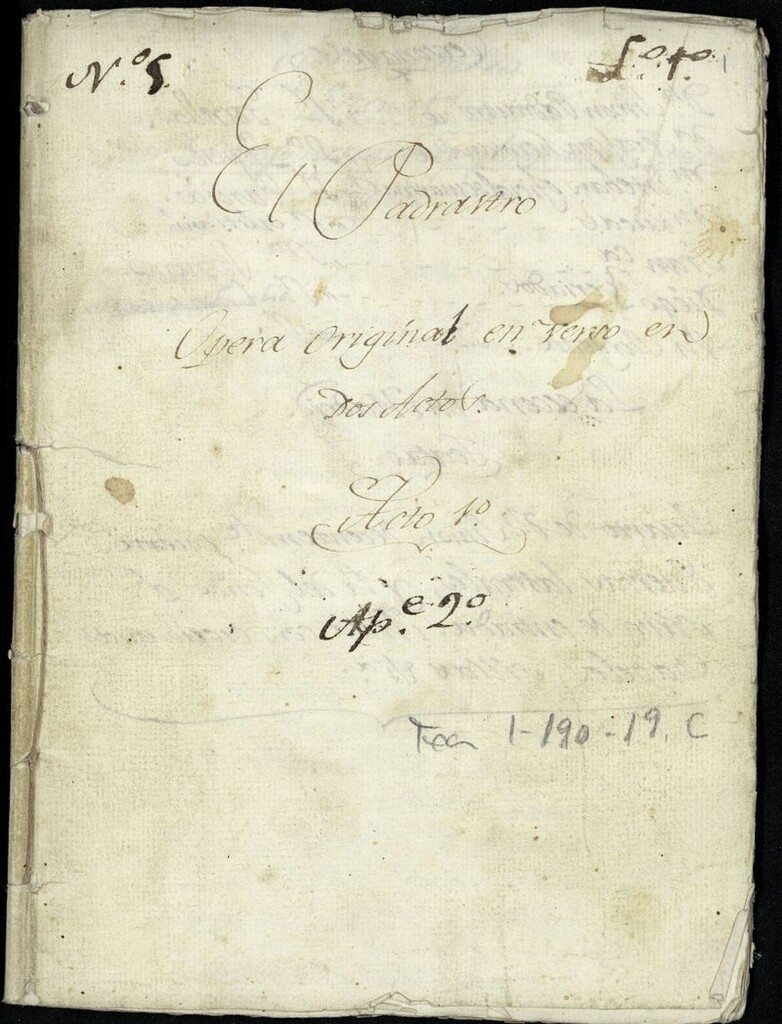 N.º 5.
L.º 1.º
El Padrastro
Opera original en verso en
Dos Actos.
Acto 1.º
Ap.e 2.º
Tea 1-190-19. C